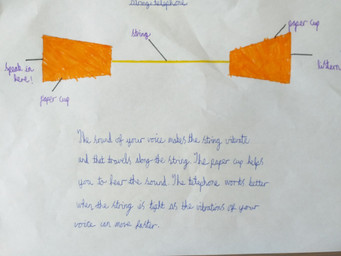 String telephone
string
paper cup
speak in
here!
paper cup
listen
The sound of your voice makes the string vibrate
and that travels along the string. The paper cup helps
you to hear the sound. The telephone works better
when the string is tight as the vibrations of your
voice can move faster.